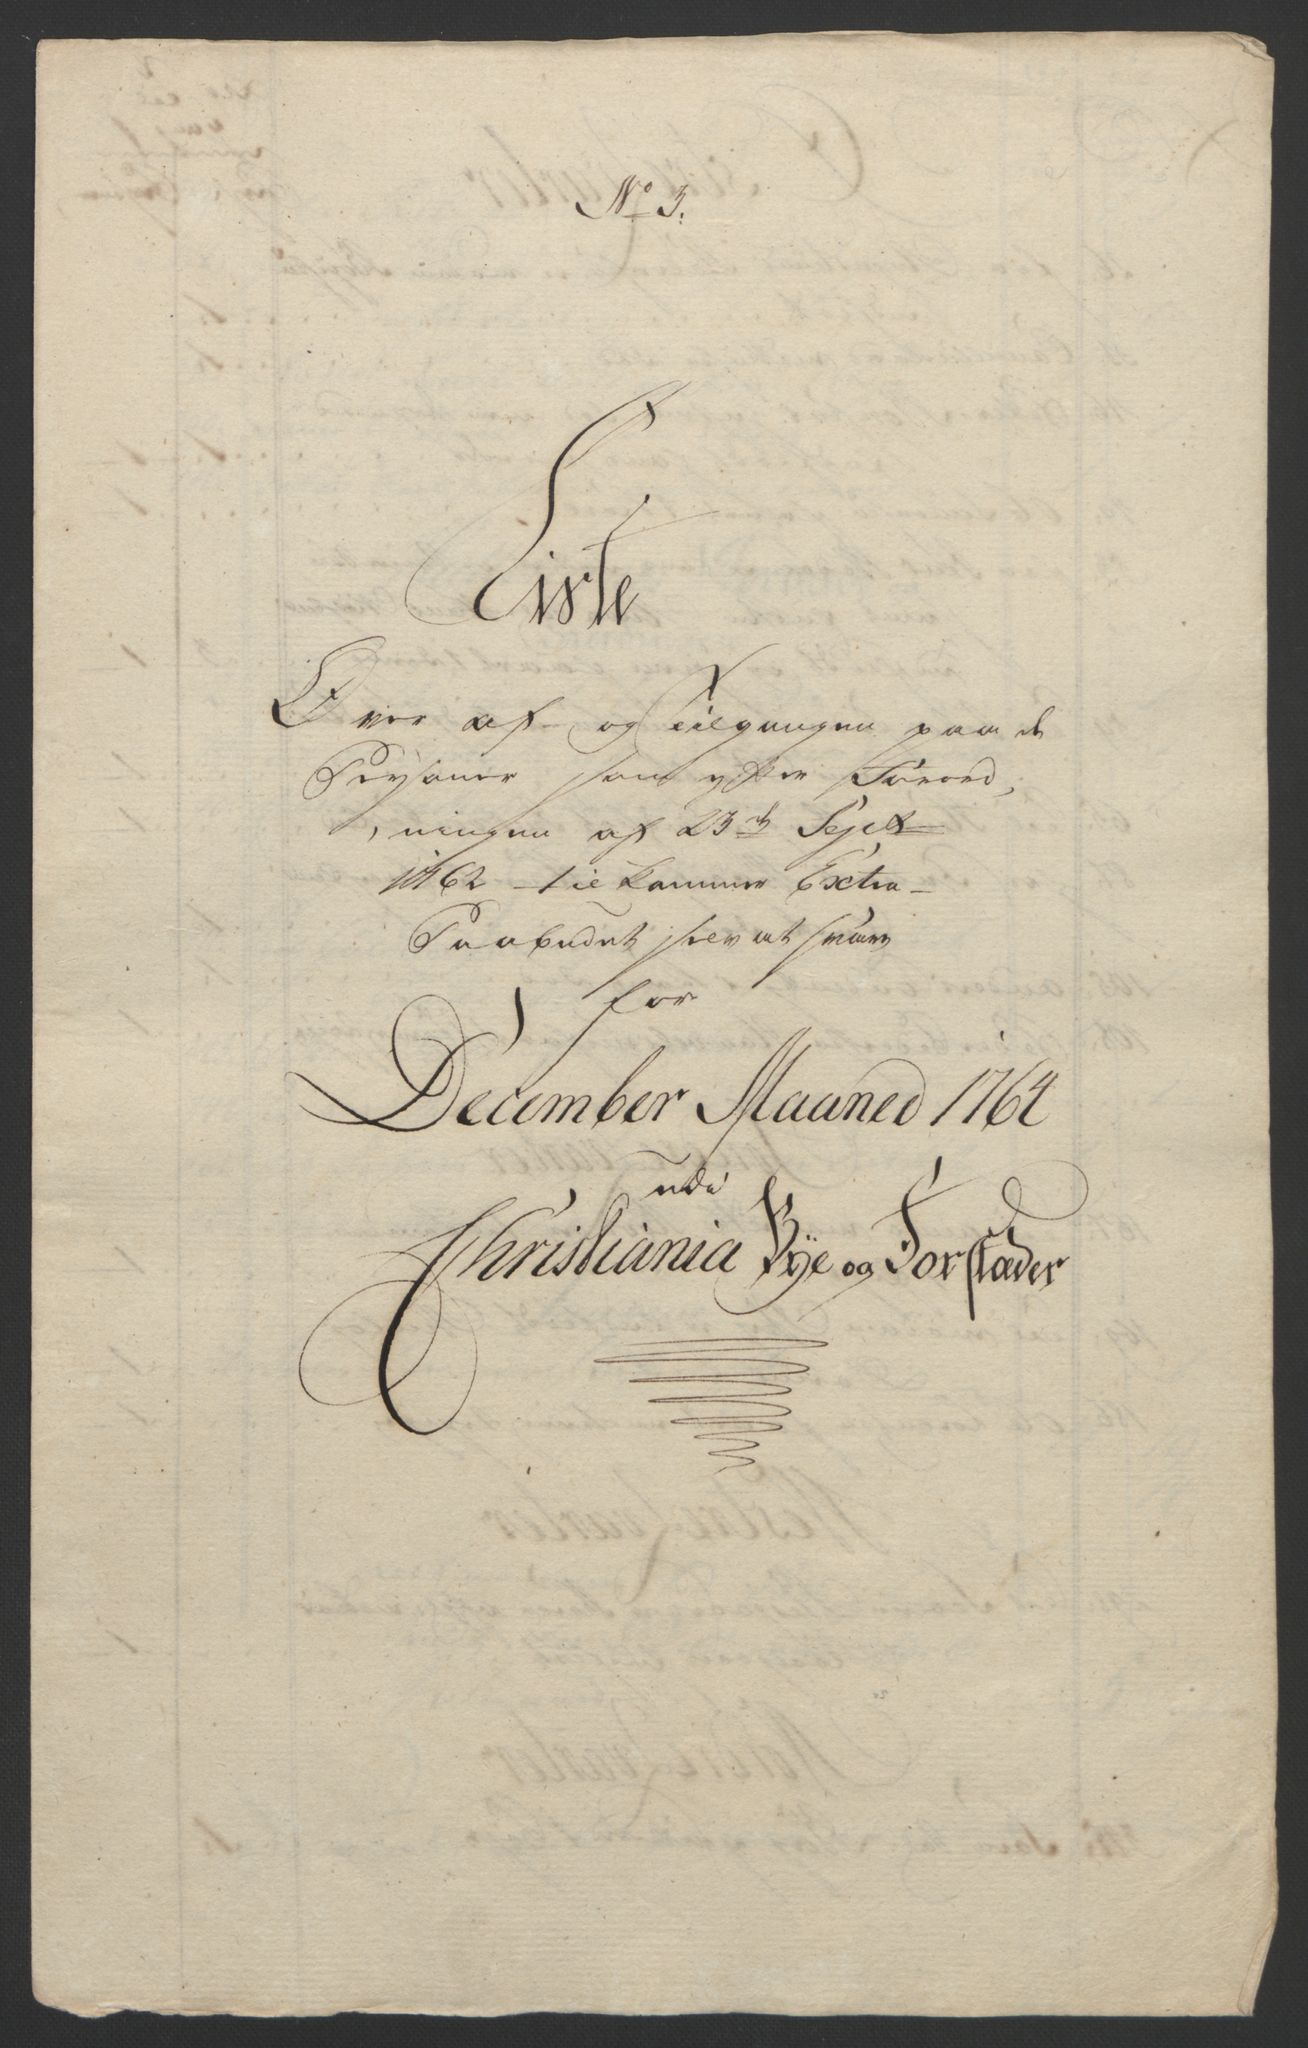 No 3.
Liste
Over af- og Tilgangen paa de
Persaner som efter Forord,
,ningen af 23de Sept
1762 til kommer Extra-
Paabudet selv at svare
for
December Maaned 1764
udi
Christiania Bye og Forstæder